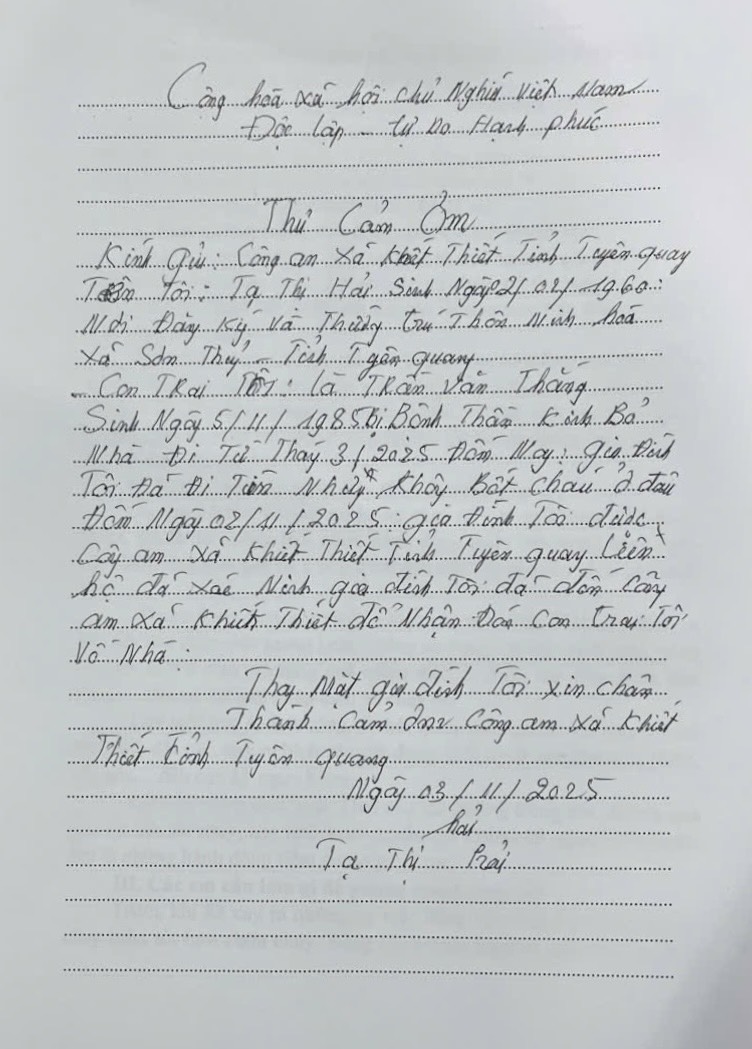 Cộng hoà xã hội chủ Nghĩa Việt Nam
Độc lập - tự Do Hạnh phúc
Thư Cảm Ơm
Kính gửi: Công an xã Khiết Thiết Tỉnh Tuyên quay
Tên Tôi: Tạ Thị Hải Sinh Ngày 2/02/1960:
Nơi Đăng Ký và Thường trú Thôn Ninh hoá
xã Sơn Thuỷ - Tỉnh Tyên quang
- Con TRai Tôi: là TRần Văn Thắng
Sinh Ngày 5/11/1985 Bị Bệnh Thần Kinh Bỏ
Nhà Đi Từ Tháy 3/2025 Đến Nay: gia Đình
Tôi Đã Đi Tìm Khôy Biết Cháu ở đâu
Đến Ngày 02/11/2025: gia Đình Tôi được
Cây am xã Khiết Thiết Tỉnh Tuyên quay Liên
hệ đã xác Ninh gia đình Tôi đã đến Cây
am xã Khiết Thiết để Nhận Đón Con trai Tôi
Về Nhà:
Thay Mặt gia đình Tôi xin chân
Thành Cảm ơn Công am xã Khiết
Thiết Tỉnh Tuyên quang
Ngày 03/11/2025
hải
Tạ Thị Hải